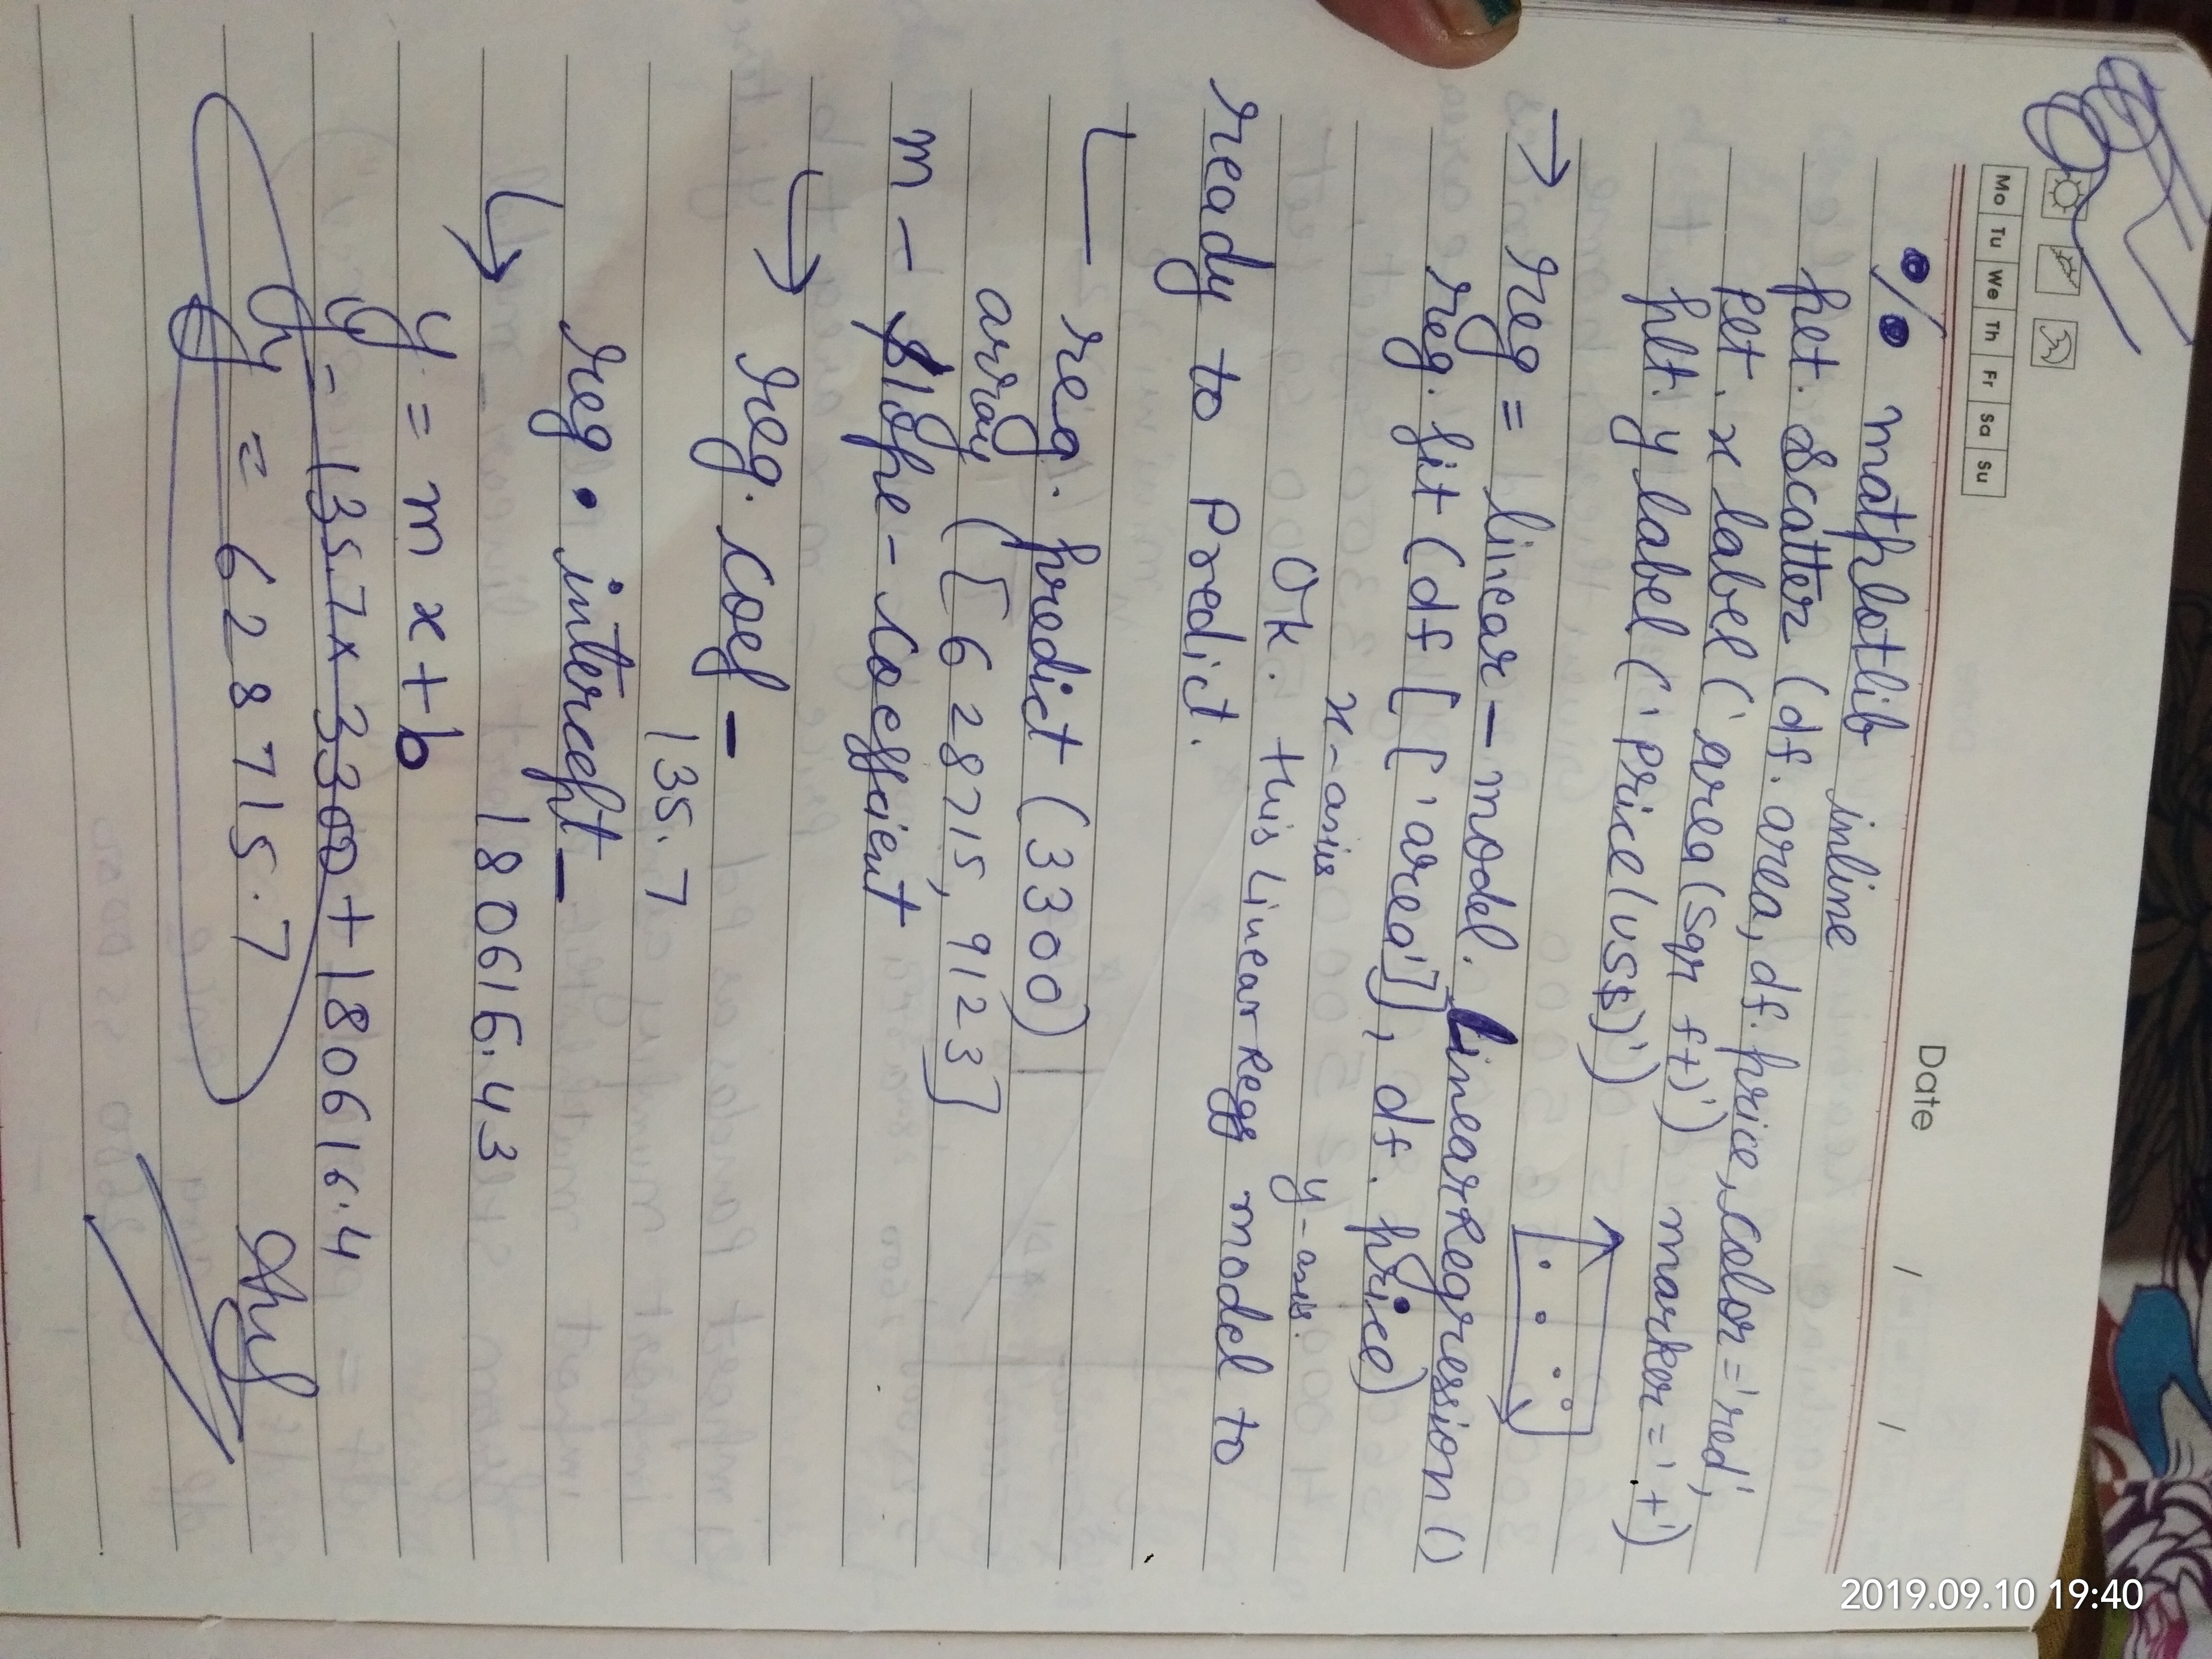 Mo Tu We Th Fr Sa Su
Date / /
% matplotlib inline
plt. scatter (df. area, df. price, color = 'red',
plt. x label ('area (sqr ft)') marker = '+')
plt. y label ('price (US$)')
→ reg = linear - model. LinearRegression ()
reg. fit (df [['area']], df. price)
x-axis y-axis.
Ok. this Linear Regg model to
ready to Predict.
reg. predict (3300)
array ([628715, 9123]
m - slope - Coefficient
→ reg. coef _
135.7
reg. intercept _
→ 180616.43
y = m x + b
y = 135.7 x 3300 + 180616.4
y = 628715.7
2019.09.10 19:40